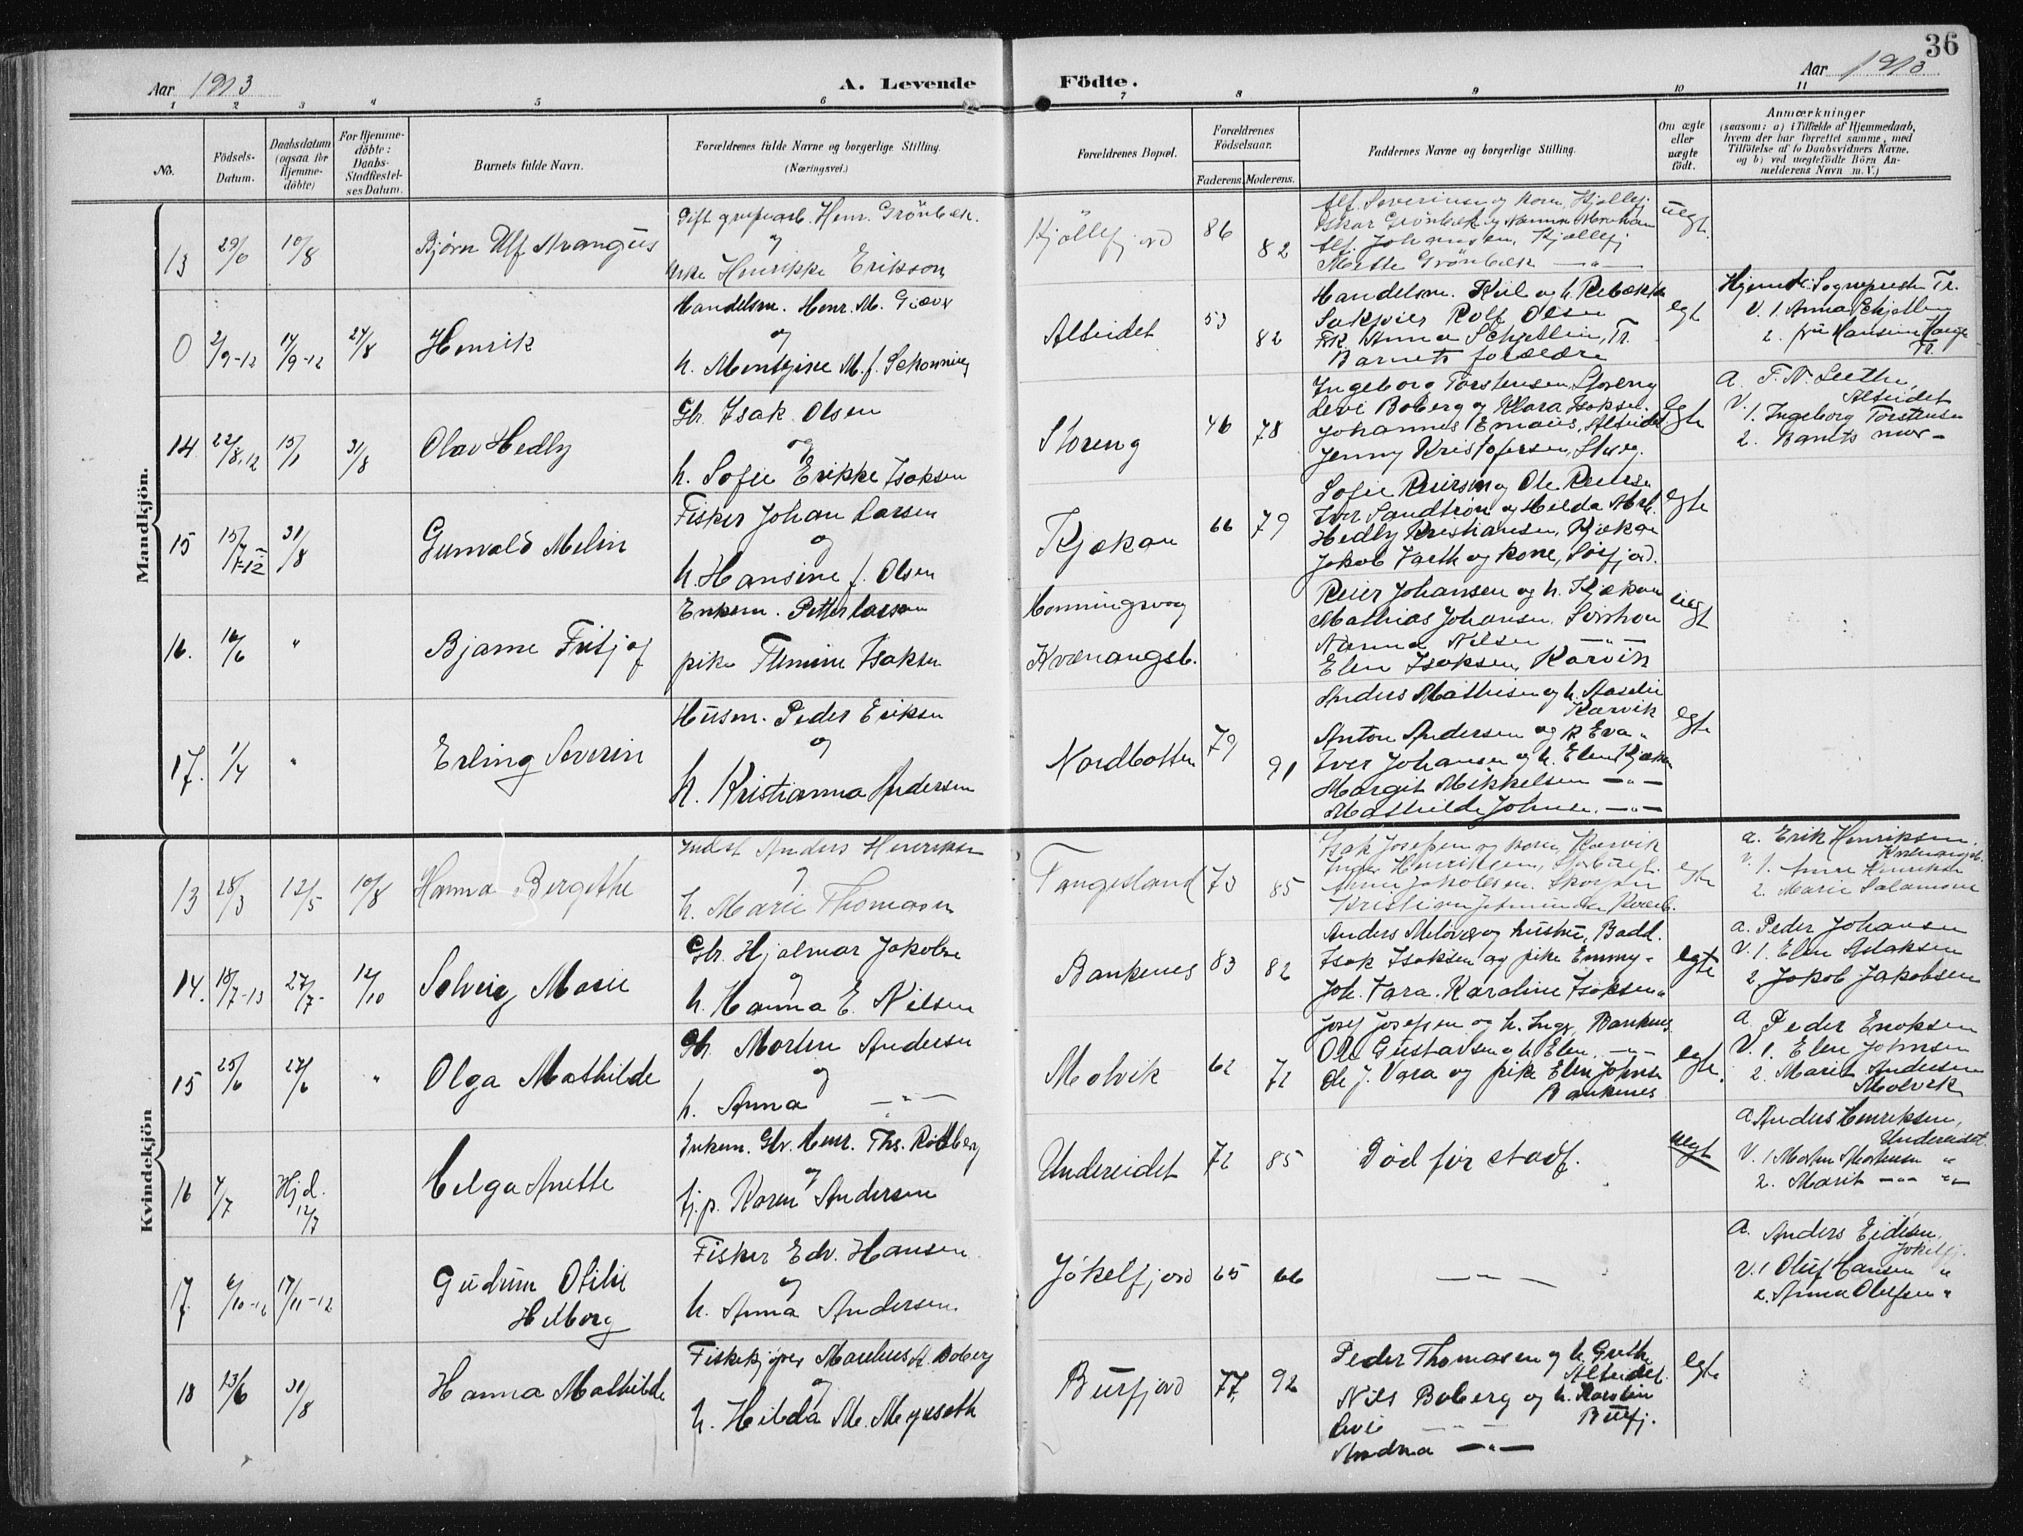 36
Aar 1913
A. Levende
Födte.
Aar 1913
1 2 3 4 5 6 7 8 9 10 11
No.
Födsels-
Datum.
Daabsdatum
(ogsaa for
Hjemme-
döbte)
For Hjemme-
döbte:
Daabs-
Stadfæstel-
ses Datum.
Barnets fulde Navn.
Forældrenes fulde Navne og borgerlige Stilling.
(Næringsvei.)
Forældrenes Bopæl.
Forældrenes
Födselsaar.
Faderens. Moderens.
Faddernes Navne og borgerlige Stilling.
Om ægte
eller
uægte
födt.
Anmærkninger
(saasom: a) i Tilfælde af Hjemmedaab,
hvem der har forrettet samme, med
Tilföielse af to Daabsvidners Navne,
og b) ved uegtefödte Börn An-
melderens Navn m. V.)
Mandkjön.
13 29/6 10/8 Bjørn Ulf Magnus
Henr. Grönbæk
og
Henrikke Erikson
Kjöllefjord 86 82
Severinsen og kone, Kjöllefj.
Oskar Grönbæk og Nanna Abraham
Alf. Johansen, Kjöllefj.
Mette Grönbæk —"—
uegt.
0 2/9-12 14/9-12 24/8 Henrik
Handelsm. Henr. M. Giæver
og
h. M. f. Schønning
Alteidet 53 82
Handelsm. Kiil og h. Rebekka
Rolf Olsen
Frk. Anna Schjelbn, Tr.
Barnets forældre
egte
Hjemd. Sogneprest Tr.
V. 1. Anna
2. fru Hansine
Tr.
14 22/8.12 15/1 31/8 Olav Hedly
Gbr. Isak Olsen
og
h. Sofie Erikke Isaksen
Storeng 46 78
Ingeborg Torstensen, Storeng
Levi Boberg og Klara Isaksen.
Johannes Emaus, Alteidet
Jenny Kristofersen, Storeng.
egte
a. T. N. Sethe,
Alteidet
V. 1. Ingeborg Torstensen
2. Barnets mor –
15 15/7-12 31/8 Gunvald Melin
Fisker Johan Larsen
og
h. Hansine f. Olsen
Kjækan 66 79
Sofie Reiersen og Ole Reiersen
Iver Sandtrøn og Hilda
Hedly Kristiansen, Kjækan
Jakob og kone, Sørfjord.
egte
16. 16/6 " Bjarne Fritjof
Enkem. Petter Larsen
pike Flemine Isaksen
Honningsvaag
Kvænangsb.
Reier Johansen og h. Kjækan
Mathias Johansen, Sørstraumen
Nanna Nilsen —"—
Elen Isaksen, Karvik
uegt
17. 1/4 " Erling Severin
Husm. Peder Eriksen
og
h. Kristianna Andersen
Nordbotten 79 91
Anders Mathisen og h.
Karvik
Anton Andersen og p. Eva "
Iver Johansen og h. Elen Kjækan
Margit Mikkelsen —"—
Mathilde Johnsen —"—
egte
Kvindekjön
13 28/3 12/5 10/8 Hanna Bergithe
Indst Anders Henriksen
og
h. Marie Thomasen
Tangesland 73 85
Isak Josefsen og kone, Karvik
Inger Henriksen,
Anne Jakobsen,
Kristian
egte
a. Erik Henriksen,
Kvænangsb.
V. 1. Anne Henriksen
2. Marie Salamonsen
14. 18/7-13 27/7- 12/10 Solveig Marie
Gbr. Hjalmar Jakobsen
og
h. Hanna E. Nilsen
Bankenes 83 82
Anders og hustru, Badd.
Isak Isaksen og pike Emmy "
Joh. Vara. Karoline Isaksen "
egte
a. Peder Johansen
V. 1. Elen Aslaksen
2. Jakob Jakobsen
15 25/6 27/6 " Olga Mathilde
Gbr. Morten Andersen
og
h. Anna —"—
Molvik 62 72
Josef Josefsen og h. Inga, Bankenes
Ole Gustavsen og h. Elen —"—
Ole J. Vara og pike Elen Johnsen
Bankenes
egte.
a. Peder Enoksen
V. 1. Elen Johnsen
2. Marit Andersen
Molvik
16 7/7 Hjd. 12/7 Helga Anette
Enkem. Gbr. Henr. Ths. Rødberg
og
tj.p. Karen Andersen
Undereidet 72 85
Død før stadf.
uegt
a. Anders Henriksen,
Undereidet.
V. 1 Morten Mortensen "
2. Marit —"— "
17. 6/10-12 17/11-12 Gudrun Otilie
Helborg
Fisker Edv. Hansen
og
h. Anna Andersen.
Jökelfjord 65 66
— — —
a. Anders Eidesen,
Jökelfj.
V. 1 Oluf Hansen "
2. Anna Olufsen "
18 23/6 31/8 Hanna Mathilde
Fiskekjøper Markus A. Boberg
og
h. Hilda M. Myrseth
Burfjord 77 92
Peder Thomasen og h. Grethe
Alteidet.
Nils Boberg og h. Karolin
Burfj.
Levi — " —
Andrea — " —
egte